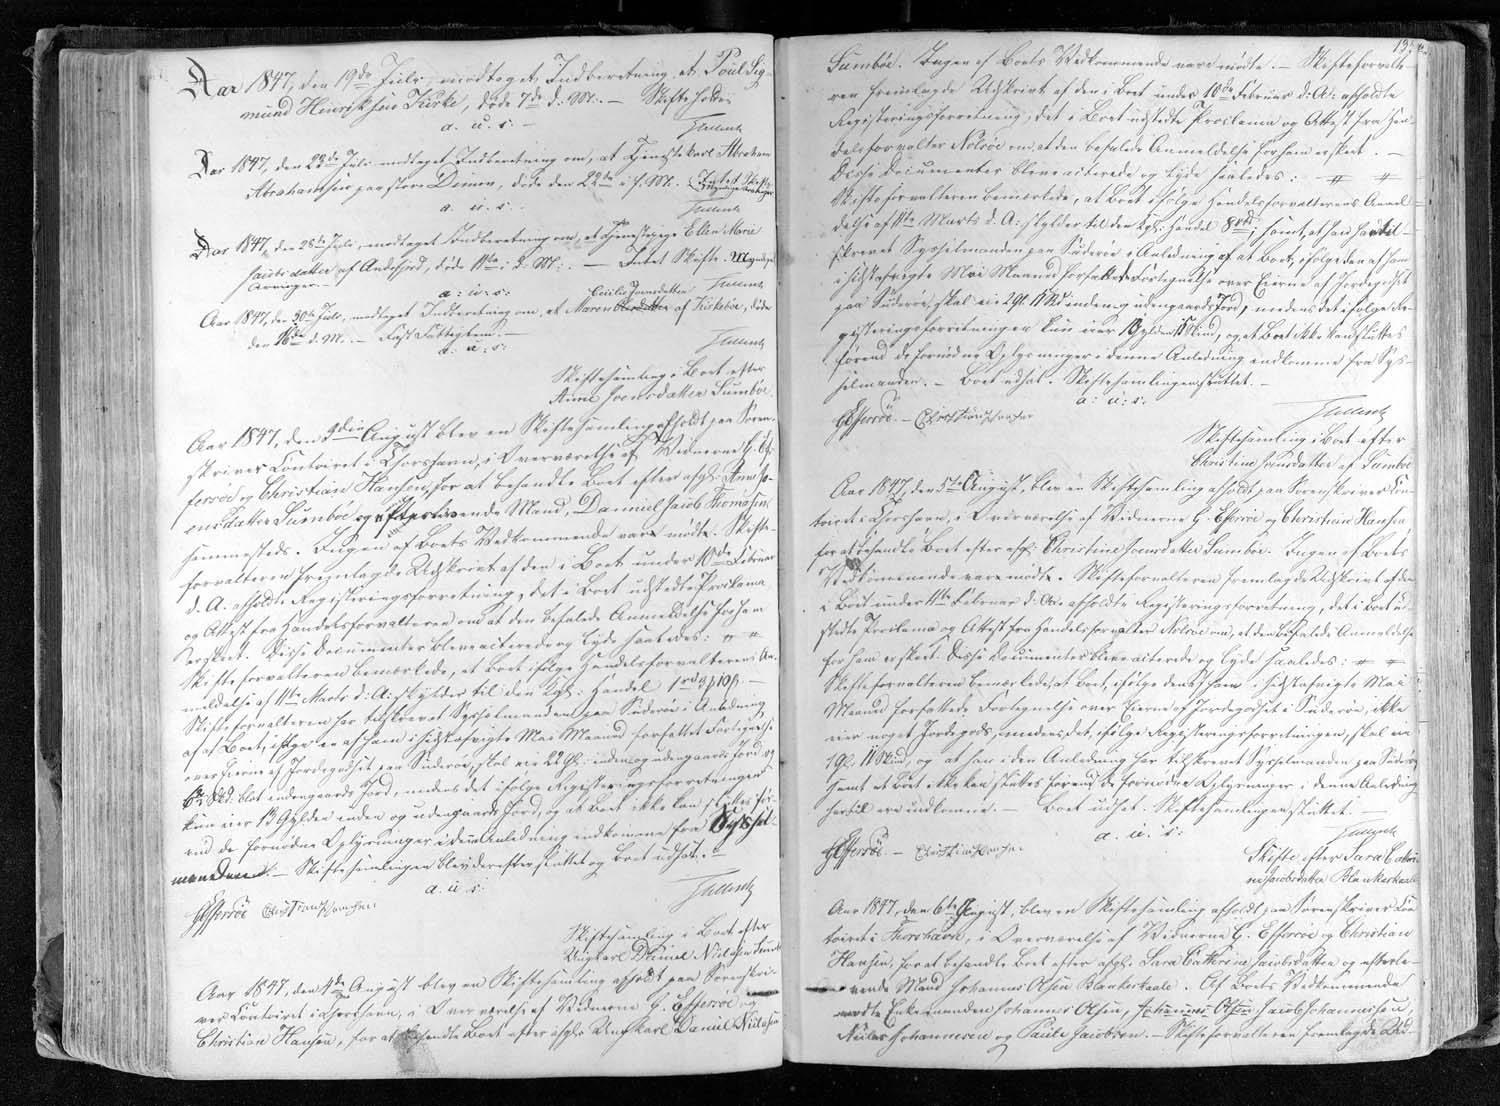 Aar 1847, den 19de Juli, modtaget Indberetning, at Poul Sig-
mund Henriksen Kirke, døde 7de d. M. — Skifte holdes
a. u. s.
Aar 1847, den 23de Juli modtaget Indberetning om, at Tjenestekarl Abraham
Abrahamsen paa store Dimon, døde den 22de i f. M. Intet Skifte
Myndige Arvinger
a. u. s.
Aar 1847, den 28de Juli, modtaget Indberetning om, at Tjenestepige Ellen Marie
Jacobsdatter af Andefjord, døde 11te i d. M. — Intet Skifte. Myndige
Arvinger. —
a. u. s.
Cicilie Joensdatter
Aar 1847, den 30te Juli, modtaget Indberetning om, at Maren af Kirkebøe, døde
den 16de d. M. — Fast Fattiglem. —
a. u. s.
Skiftesamling i Boet efter
Anne Joensdatter Sumbøe.
Aar 1847, den August blev en Skiftesamling afholdt paa Soren-
skriver Contoiret i Thorshavn, i Overværelse af Vidnerne G. Ef-
fersøe og Christian Hansen, for at behandle Boet efter afgl. Anne Jo-
ensdatter Sumbøe og efterlevende Mand, Danniel Jacob Thomasen
sammesteds. Ingen af Boets Vedkommende vare mødte. Skifte-
forvalteren fremlagde Udskrivt af den i Boet under 10de Februar
d. A. afholdte Registreringsforretning, det i Boet udstedte Proclama
og Attest fra Handelsforvalteren om at den befalede Anmeldelse for ham
er skeet. Disse Documenter bleve aciterede og lyde saaledes: # #
Skifteforvalteren bemærkede, at Boet ifølge Handelsforvalterens An-
meldelse af 11te Marts d. A. skylder til den Kgl. Handel 1rd 3 10 —
Skifteforvalteren har tilskrevet Sysselmanden paa Suderøe i Anledning
af at Boet, ifølge en af ham i sidstafvigte Mai Maaned forfattet Fortegnelse
over Eierne af Jordegodset paa Suderøe, skal eie 22 Gl. inden og udengaards Jord og
6 Skd. blot indengaards Jord, medens det ifølge Registreringsforretningen
kun eier 13 Gylden inden og udengaards Jord, og at Boet ikke kan sluttes før-
end de fornødne Oplysninger i denne Anledning indkomme fra Syssel-
manden. — Skiftesamlingen blev derefter sluttet og Boet udsat. —
a. u. s.
GEffersøe Christian Hansen
Skiftesamling i Boet efter
Ungkarl Daniel Nielsen Sumbø
Aar 1847, den 4de August blev en Skiftesamling afholdt paa Sorenskri-
ver Contoiret i Thorshavn, i Overværelse af Vidnerne G. Effersøe og
Christian Hansen, for at behandle Boet efter afgl. Ungkarl Daniel Nielsen
Sumbøe. Ingen af Boets Vedkommende vare mødte. — Skifteforvalte-
ren fremlagde Udskrivt af den i Boet under 10de Februar d. A. afholdte
Registreringsforretning, det i Boet udstedte Proclama og Attest fra Han-
delsforvalter Nolsøe om, at den befalede Anmeldelse for ham er skeet. —
Disse Documenter bleve aciterede og lyde saaledes: # #
Skifteforvalteren bemærkede, at Boet ifølge Handelsforvalterens Anmel-
delse af 11te Marts d. A. skylder til den Kgl. Handel samt, at han har til-
skrevet Sysselmanden paa Suderøe i Anledning af at Boet, ifølge den af ham
i sidstafvigte Mai Maaned forfattede Fortegnelse over Eierne af Jordegodset
paa Suderøe, skal eie 2 Gl. 11 Skd inden og udengaards Jord, medens det ifølge Re-
gistreringsforretningen kun eier Gylden 15 Skind, og at Boet ikke kan sluttes
førend de fornødne Oplysninger i denne Anledning indkomme fra Sys-
selmanden. — Boet udsat. Skiftesamlingen sluttet. —
a. u. s.
GEffersøe. — Christian Hansen
Skiftesamling i Boet efter
Christine Joensdatter af Sumbøe
Aar 1847, den 5te August, blev en Skiftesamling afholdt paa Sorenskriver Con-
toiret i Thorshavn, i Overværelse af Vidnerne G. Effersøe og Christian Hansen
for at behandle Boet efter afgl. Christine Joensdatter Sumbøe. Ingen af Boets
Vedkommende vare mødte. Skifteforvalteren fremlagde Udskrivt af den
i Boet under 11te Februar d. A. afholdte Registreringsforretning, det i Boet ud-
stedte Proclama og Attest fra Handelsforvalter Nolsøe om, at den befalede Anmeldelse
for ham er skeet. Disse Documenter bleve aciterede og lyde saaledes: # #
Skifteforvalteren bemærkede, at Boet, ifølge den af ham i sidstafvigte Mai
Maaned forfattede Fortegnelse over Eierne af Jordegodset i Suderøe, ikke
eier noget Jordegods, medens det, ifølge Registreringsforretningen, skal eie
1 Gl. 11 Skind, og at han i den Anledning har tilskrevet Sysselmanden paa Suderø
samt at Boet ikke kan sluttes førend de fornødne Oplysninger i denne Anledning
hertil ere indkomne. — Boet udsat. Skiftesamlingen sluttet. —
a. u. s.
GEffersøe — Christian Hansen
Skifte efter Sara Cathri-
ne Jacobsdatter Blankeskaale
Aar 1847, den 6te August, blev en Skiftesamling afholdt paa Sorenskriver Con-
toiret i Thorshavn, i Overværelse af Vidnerne G. Effersøe og Christian
Hansen, for at behandle Boet efter afgl. Sara Cathrine Jacobsdatter og efterle-
vende Mand Johannes Olsen Blankeskaale. Af Boets Vedkommende
mødte Enkemanden Johannes Olsen, Johannes Olsen Jacob Johannesen,
Niels Johannesen og Poule Jacobsen. — Skifteforvalteren fremlagde Ud-